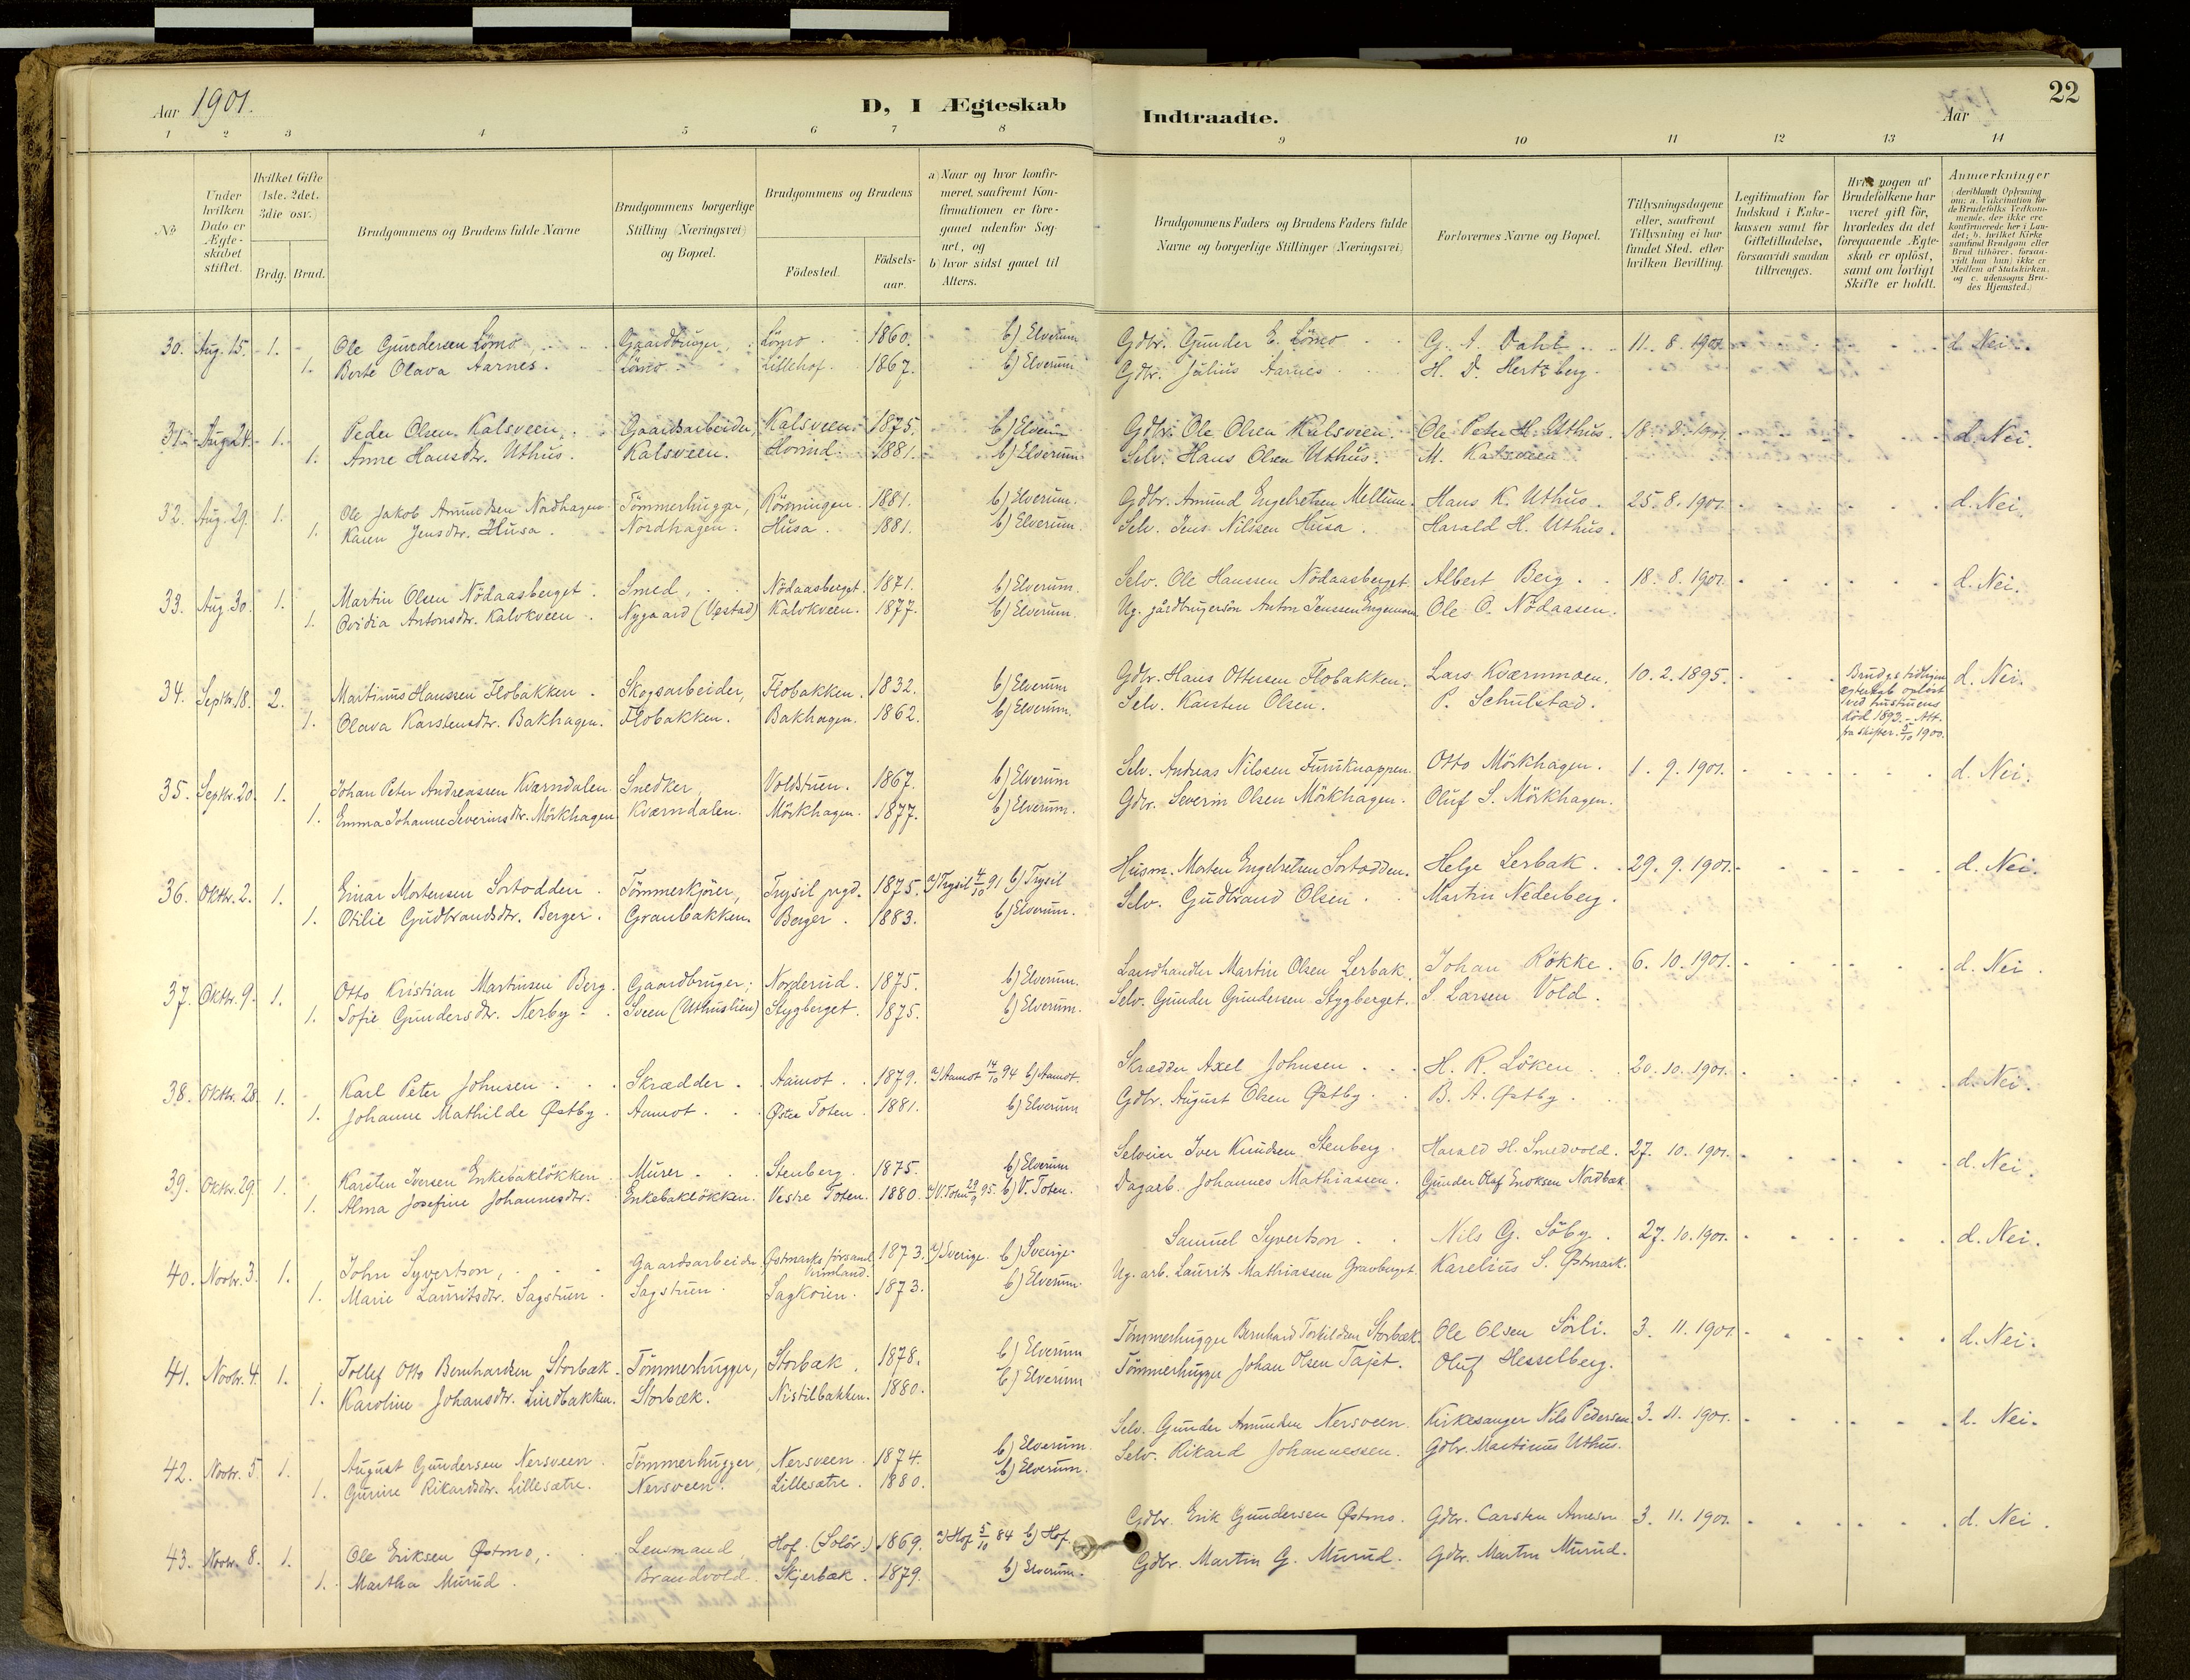 Aar 1901. D, I Ægteskab Indtraadte. Aar 22
1 2 3 4 5 6 7 8 9 10 11 12 13 14
No
Under hvilken Dato er Ægteskabet stiftet.
Hvilket Gifte (1ste, 2det, 3die osv.)
Brdg. Brud.
Brudgommens og Brudens fulde Navne
Brudgommens borgerlige Stilling (Næringsvei) og Bopæl.
Brudgommens og Brudens
Födested.
Födselsaar.
a) Naar og hvor konfirmeret, saafremt Konfirmationen er foregaaet udenfor Sognet, og
b) hvor sidst gaaet til Alters.
Brudgommens Faders og Brudens Faders fulde Navne og borgerlige Stillinger (Næringsvei)
Forlovernes Navne og Bopæl.
Tillysningsdagene eller, saafremt Tillysning ei har fundet Sted, efter hvilken Bevilling.
Legitimation for Indskud i Enkekassen samt for Giftetilladelse, forsaavidt saadan tiltrænges.
Hvis nogen af Brudefolkene har været gift för, hvorledes da det foregaaende Ægteskab er oplöst, samt om lovligt Skifte er holdt.
Anmærkninger (deriblandt Oplysning om: a. Vakcination for de Brudefolks Vedkommende, der ikke ere konfirmerede her i Landet; b. hvilket Kirkesamfund Brudgom eller Brud tilhörer, forsaavidt han (hun) ikke er Medlem af Statskirken, og c. udensogns Brudes Hjemsted.)
30. Aug. 15. 1. Ole Gundersen Lömo Gaardbruger, Lömo 1860. b) Elverum Gdbr. Gunder E. Lömo G. A. Dahl 11. 8. 1901 d. Nei.
1. Berte Olava Aarnes. Lömo Lillehof. 1867. b) Elverum Gdbr. Julius Aarnes H. D. Hertzberg.
31. Aug. 24. 1. Peder Olsen Kalsveen Gaardsarbeider, Kalsveen 1875. b) Elverum Gdbr. Ole Olsen Kalsveen. Ole Peter H. Uthus. 18. 8. 1901. d. Nei.
1. Anne Hansdtr. Uthus. Kalsveen. Hvinid 1881. b) Elverum Selv. Hans Olsen Uthus. M. Kalsveen
32. Aug. 29. 1. Ole Jakob Amundsen Nordhagen Tömmerhugger, Rönningen 1881. b) Elverum. Gdbr. Amund Engebretsen Mellum. Hans K. Uthus. 25. 8. 1901. d. Nei.
1. Karen Jensdtr. Husa. Nordhagen. Husa. 1881. b) Elverum. Selv. Jens Nilssen Husa. Harald H. Uthus.
33. Aug. 30. 1. Martin Olsen Nödaasberget. Smed, Nödaasberget. 1871. b) Elverum. Selv. Ole Hanssen Nödaasberget Albert Berg. 18. 8. 1901. d. Nei.
1. Ovidia Antonsdtr. Kalvkveen. Nygaard (Opstad) Kalvkveen. 1877. b) Elverum. Ug. gårdbrugersön Anton Jenssen Engemoen Ole O. Nödaasen.
34. Septbr. 18. 2. Martinus Hanssen Flobakken. Skogsarbeider, Flobakken. 1832. b) Elverum Gdbr. Hans Ottersen Flobakken. Lars Kværnmoen. 10. 2. 1895. d. Nei.
Brudg.s tidligere ægteskab oplöst ved hustruens död 1893. - Att. fra skifter. 5/10 1900.
1. Olava Karstensdtr. Bakhagen. Flobakken. Bakhagen. 1862. b) Elverum. Selv. Karsten Olsen. P. Schulstad.
35. Septbr. 20. 1. Johan Peter Andreassen Kværndalen Snedker, Voldstuen. 1867. b) Elverum Selv. Andreas Nilssen Furuknappen. Otto Mörkhagen. 1. 9. 1901. d. Nei.
1. Emma Johanne Severinsdtr. Mörkhagen Kværndalen. Mörkhagen. 1877. b) Elverum. Gdbr. Severin Olsen Mörkhagen. Oluf S. Mörkhagen.
36. Oktbr. 2. 1. Einar Mortensen Sortodden Tömmerkjörer, Trysil prgd. 1875. a) Trysil 4/10 91 b) Trysil Husm. Morten Engebretsen Sortodden. Helge Lerbak. 29. 9. 1901. d. Nei.
1. Otilie Gudbrandsdtr. Berger. Granbakken. Berger. 1883. b) Elverum. Selv. Gudbrand Olsen. Martin Nederberg.
37. Oktbr. 9. 1. Otto Kristian Martinsen Berg. Gaardbruger, Norderud. 1875. b) Elverum. Landhandler Martin Olsen Lerbak. Johan Rökke. 6. 10. 1901. d. Nei.
1. Sofie Gundersdtr. Nerby. Sveen (Uthuslien) Stygberget. 1875. b) Elverum. Selv. Gunder Gundersen Stygberget. S. Larsen Vold.
38. Oktbr. 28. 1. Karl Peter Johnsen. Skrædder. Aamot. 1879. a) Aamot 14/10 94 b) Aamot. Skrædder Axel Johnsen H. R. Löken 20. 10. 1901. d. Nei.
1. Johanne Mathilde Østby. Aamot. Østre Toten 1881. b) Elverum Gdbr. August Olsen Østby. B. A. Østby.
39. Oktbr. 29. 1. Karsten Iversen Enkebaklökken Murer Stenberg. 1875. b) Elverum Selveier Iver Knudsen Stenberg. Harald H. Smedvold. 27. 10. 1901. d. Nei.
1. Alma Josefine Johannesdtr. Enkebaklökken. Vestre Toten. 1880. a) V. Toten 29/9 95. b) V. Toten. Dagarb. Johannes Mathiassen. Gunder Olaf Enoksen Nordbæk
40. Novbr. 3. 1. John Syvertson, Gaardsarbeider Östmarks församl. Vermland. 1873. a) Sverige. b) Sverige. Samuel Syvertson. Nils G. Söby. 27. 10. 1901. d. Nei.
1. Marie Lauritsdtr. Sagstuen. Sagstuen. Sagkoien. 1873. b) Elverum. Ug. arb. Laurits Mathiassen Gravberget. Karelius S. Østmark.
41. Novbr. 4. 1. Tollef Otto Bernhardsen Storbæk. Tömmerhugger, Storbæk. 1878. b) Elverum Tömmerhugger Bernhard Torkildsen Storbæk. Ole Olsen Sörli. 3. 11. 1901. d. Nei.
1. Karoline Johansdtr. Lindbakken. Storbæk. Nistilbakken. 1880. b) Elverum Tömmerhugger Johan Olsen Tajet. Oluf Hesselberg.
42. Novbr. 5. 1. August Gundersen Nersveen. Tömmerhugger, Nersveen. 1874. b) Elverum. Selv. Gunder Amundsen Nersveen. Kirkesanger Nils Pedersen. 3. 11. 1901. d. Nei.
1. Gurine Rikardsdtr. Lillesætre. Nersveen. Lillesætre. 1880. b) Elverum. Selv. Rikard Johannessen. Gdbr. Martinus Uthus.
43. Novbr. 8. 1. Ole Eriksen Østmo, Lensmand Hof (Solör) 1869. a) Hof 5/10 84 b) Hof. Gdbr. Erik Gundersen Østmo. Gdbr. Carsten Arnesen 3. 11. 1901. d. Nei.
1. Martha Murud. Brandvold. Skjerbæk. 1879. b) Elverum. Gdbr. Martin G. Murud. Gdbr. Martin Murud.